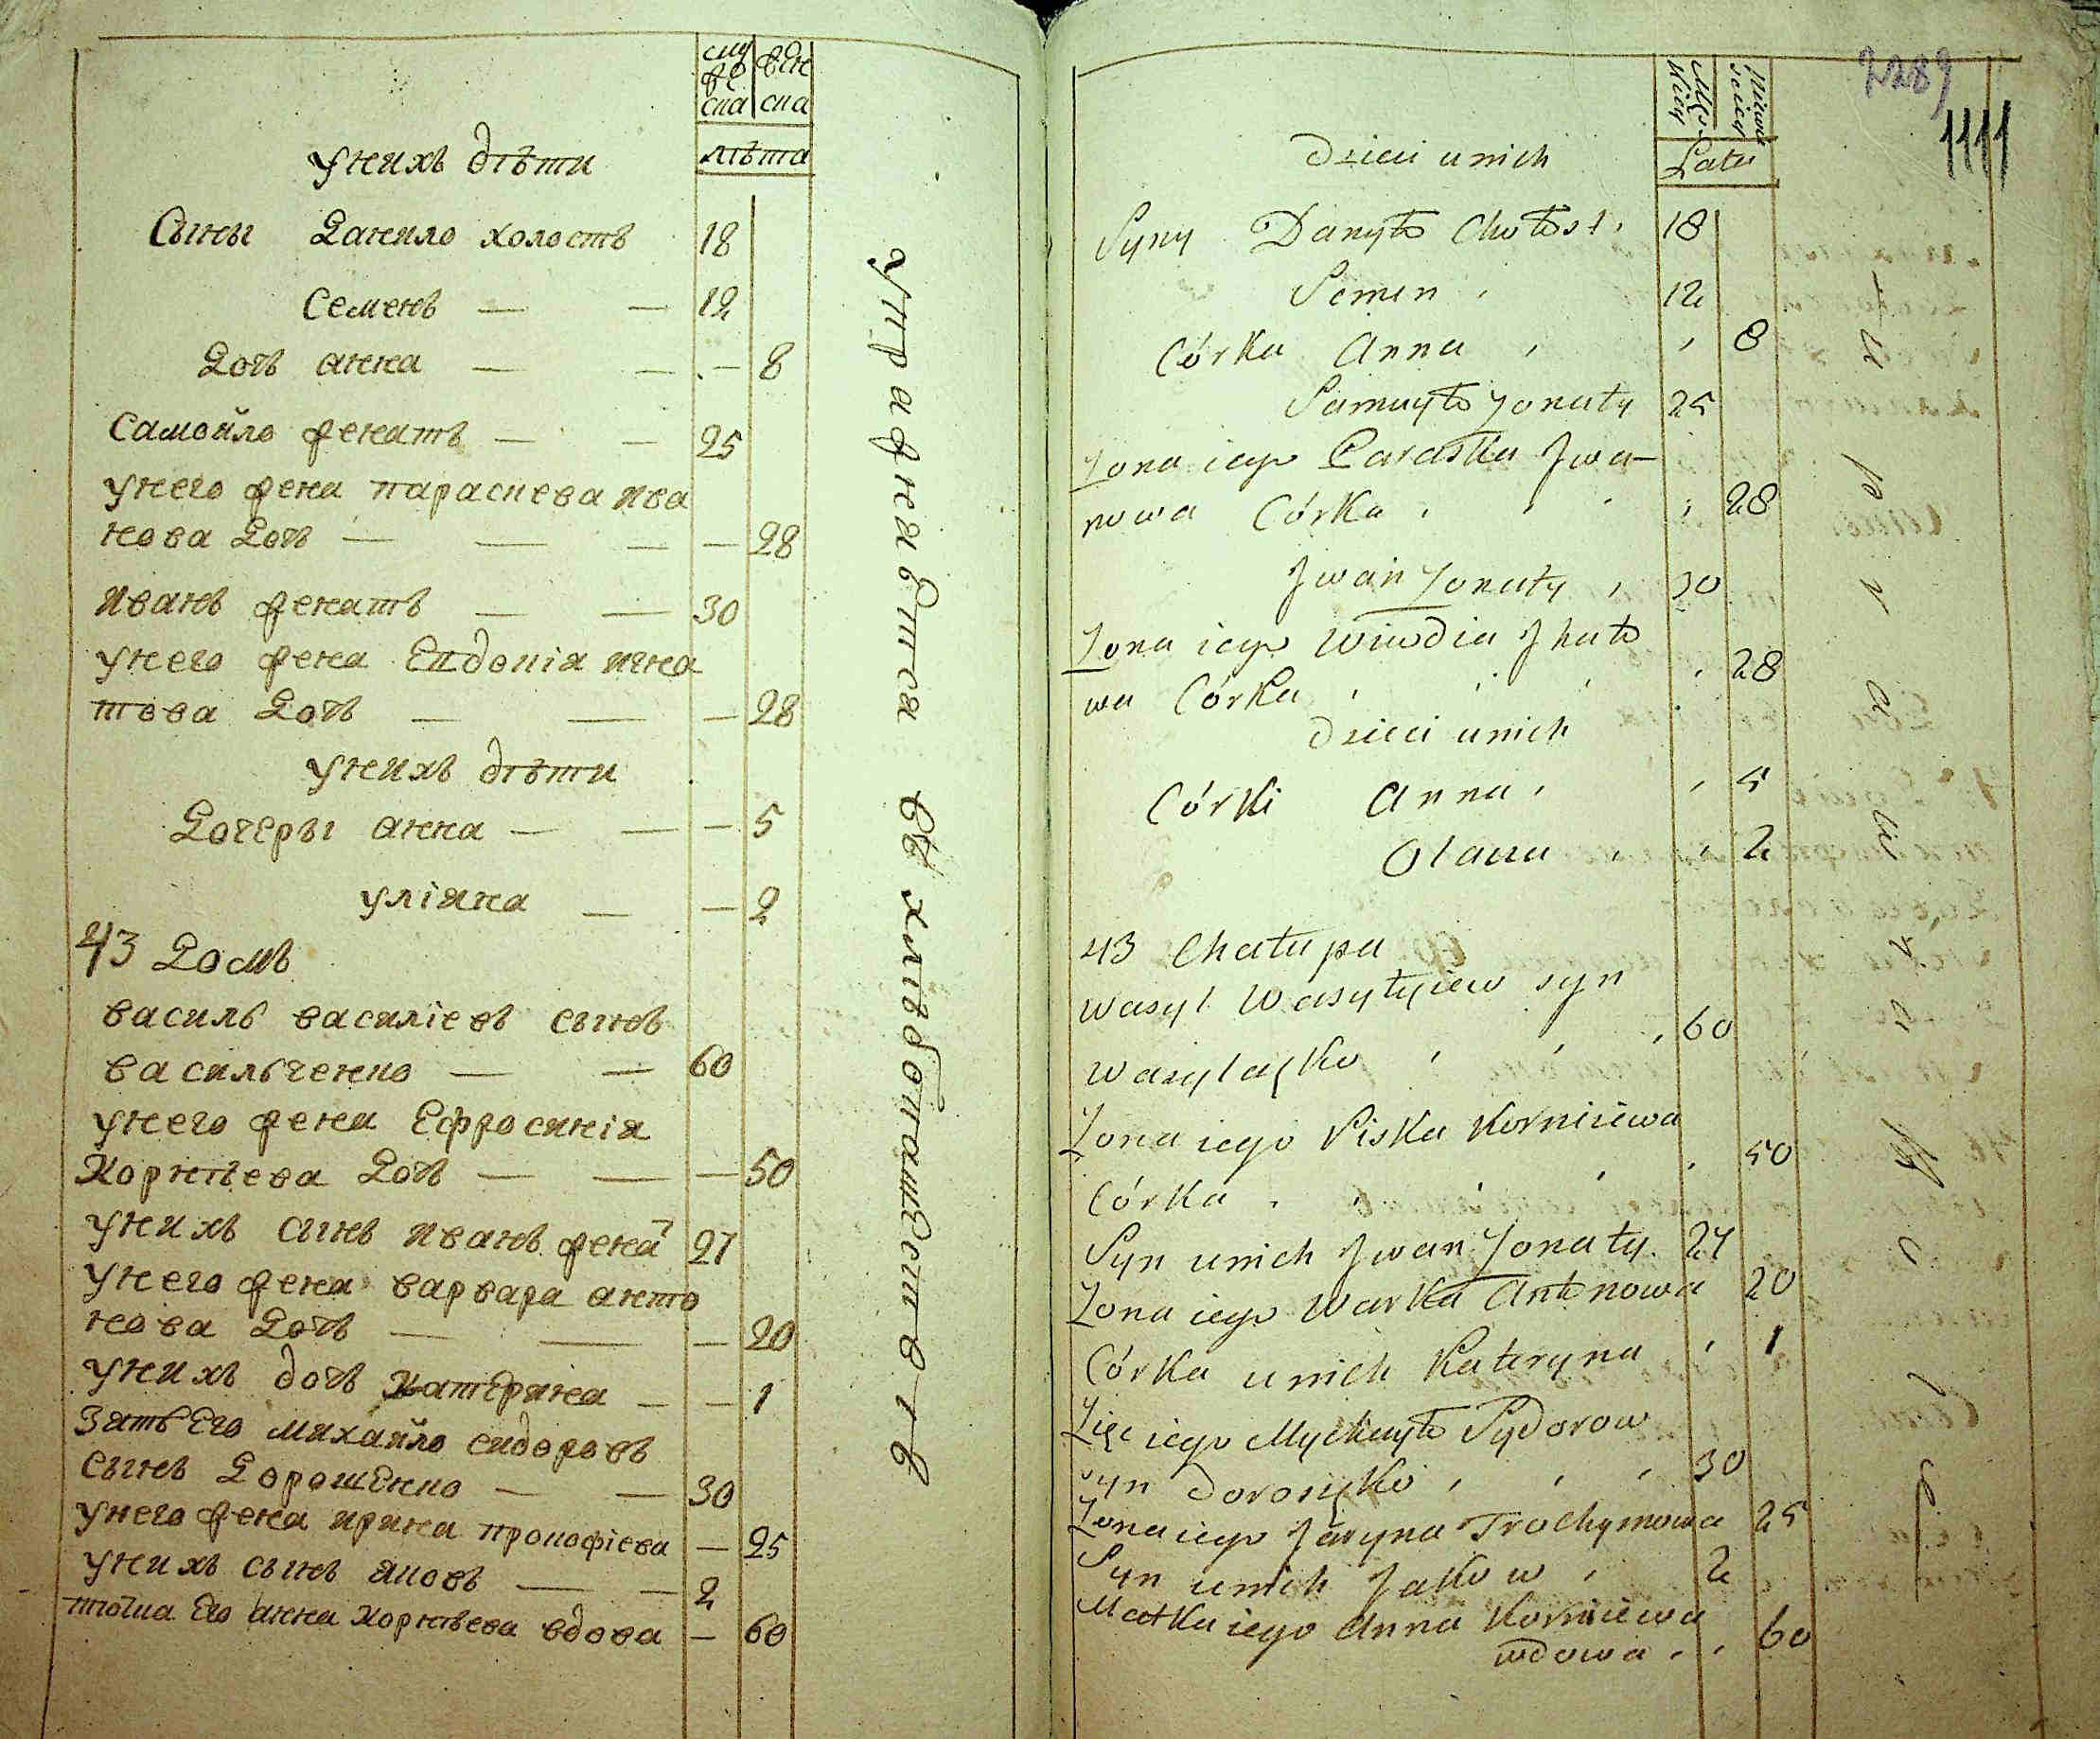 муже
ска
женс
ска
лѣта
у нихъ дѣти
Сыны Данило холостъ 18
Семенъ — — 12
Дочь анна — — — 8
Самойло женатъ — — 25
у него жена параскева ива
нова дочь — — — — 28
иванъ женатъ — — 30
у него жена Евдокія игна
това дочь — — — 28
у нихъ дѣти
Дочеры анна — — — 5
уліяна — — 2
43 Домъ
василь василіевъ сынъ
васильченко — — 60
у него жена Ефросинія
Корнѣева дочь — — — 50
у нихъ сынъ иванъ жена т 27
у него жена варвара анто
нова дочь — — — 20
у нихъ дочь катерина — — 1
Зять его михайло сидоровъ
сынъ Дорошенко — — 30
у него жена ирина прокофіева — 25
у нихъ сынъ яковъ — — 2
тіотка его анна корнѣева вдова — 60
упражнавтся въ хлѣбопашествѣ
2289
1111
Męs
kiey
Niew
sciey
Lata
Dzieci u nich
Syny Danyło Chołost. 18
Semen 12
Córka Anna 8
Samuyło Żonaty 25
Żona iego Paraska Jwa-
nowa Córka 28
Jwan Żonaty 30
Żona iego Wiwdia Jhnato
wa Córka 28
Dzieci u nich
Córki Anna 5
Olana 2
43 Chałupa
Wasyl Wasyłyiew syn
Wasylaszko 60
Żona iego Piska Kornieiewa
Córka 50
Syn u nich Jwan Żonaty 27
Żona iego Warka Antonowa 20
Córka u nich Kateryna 1
Zięc iego Mychayło Sydorow
syn Doroszko 30
Żona iego Jaryna Trochymowa 25
Syn u nich Jakow 2
Matka iego Anna Kornieiewa
wdowa 60